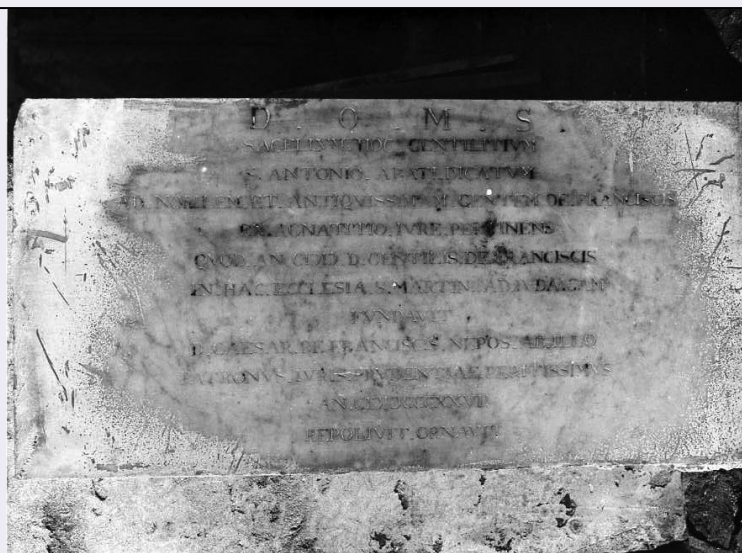 D . O . M . S
SACELLVM . HOC . GENTILITIVM
S . ANTONIO . ABATI . DICATVM
AD . NOBILEM . ET . ANTIQVISSIMAM . GENTEM . DE . FRANCISCIS
EX . AGNATITIO . IVRE . PERTINENS
QVOD . AN . D . GENTILIS . DE . FRANCISCIS
IN . HAC . ECCLESIA . S . MARTINI . AD . IVDAICAM
FVNDAVIT
D . CAESAR . DE . FRANCISCIS . NEPOS . AB . ILLO
PATRONVS . IVRISPRVDENTIAE . PERITISSIMVS
REPOLIVIT . ORNAVIT